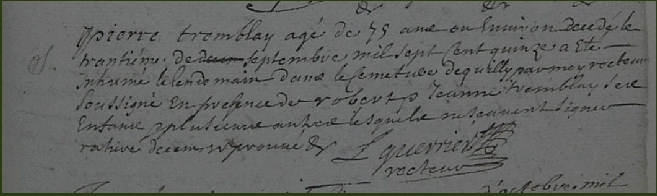 pierre tremblay agé de 75 ans ou Environ decedé le
trantiéme de decem septembre mil sept cent quinze a Eté
Inhumé le lendemain dans le semetiere de quilly par moy recteur
soussigné En presence de robert Jeanne tremblay ses
Enfans & plusieurs autres lesquels ne scavent signer
rature decem approuvé &
L guerrier
recteur
octobre mil